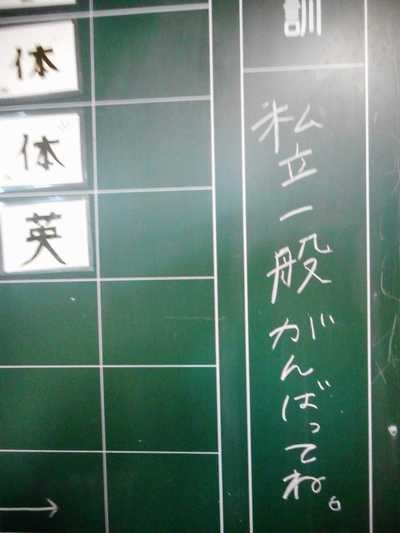 訓
私立一般がんばってね。
体
体
英